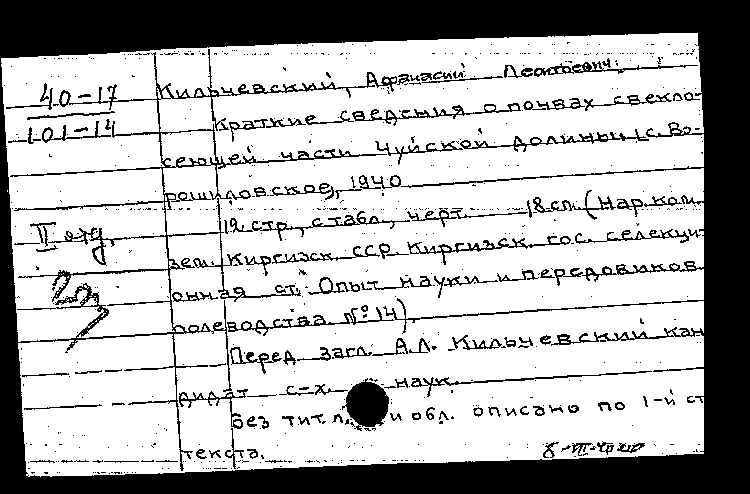 40-17
101-14
II отд.
Кильчевский, Афанасий Леонтьевич.
Краткие сведения о почвах свекло-
сеющей части Чуйской долины, с. Во-
рошиловское, 1940
12 стр., с табл., черт. 18 см. (Нар. ком.
зем. Киргизск. ССР. Киргизск. гос. селекци-
онная ст. Опыт науки и передовиков
полеводства № 14).
Перед загл. А.Л. Кильчевский кан
дидат с-х. наук.
без тит. л. и обл. описано по 1-й ст
текста.